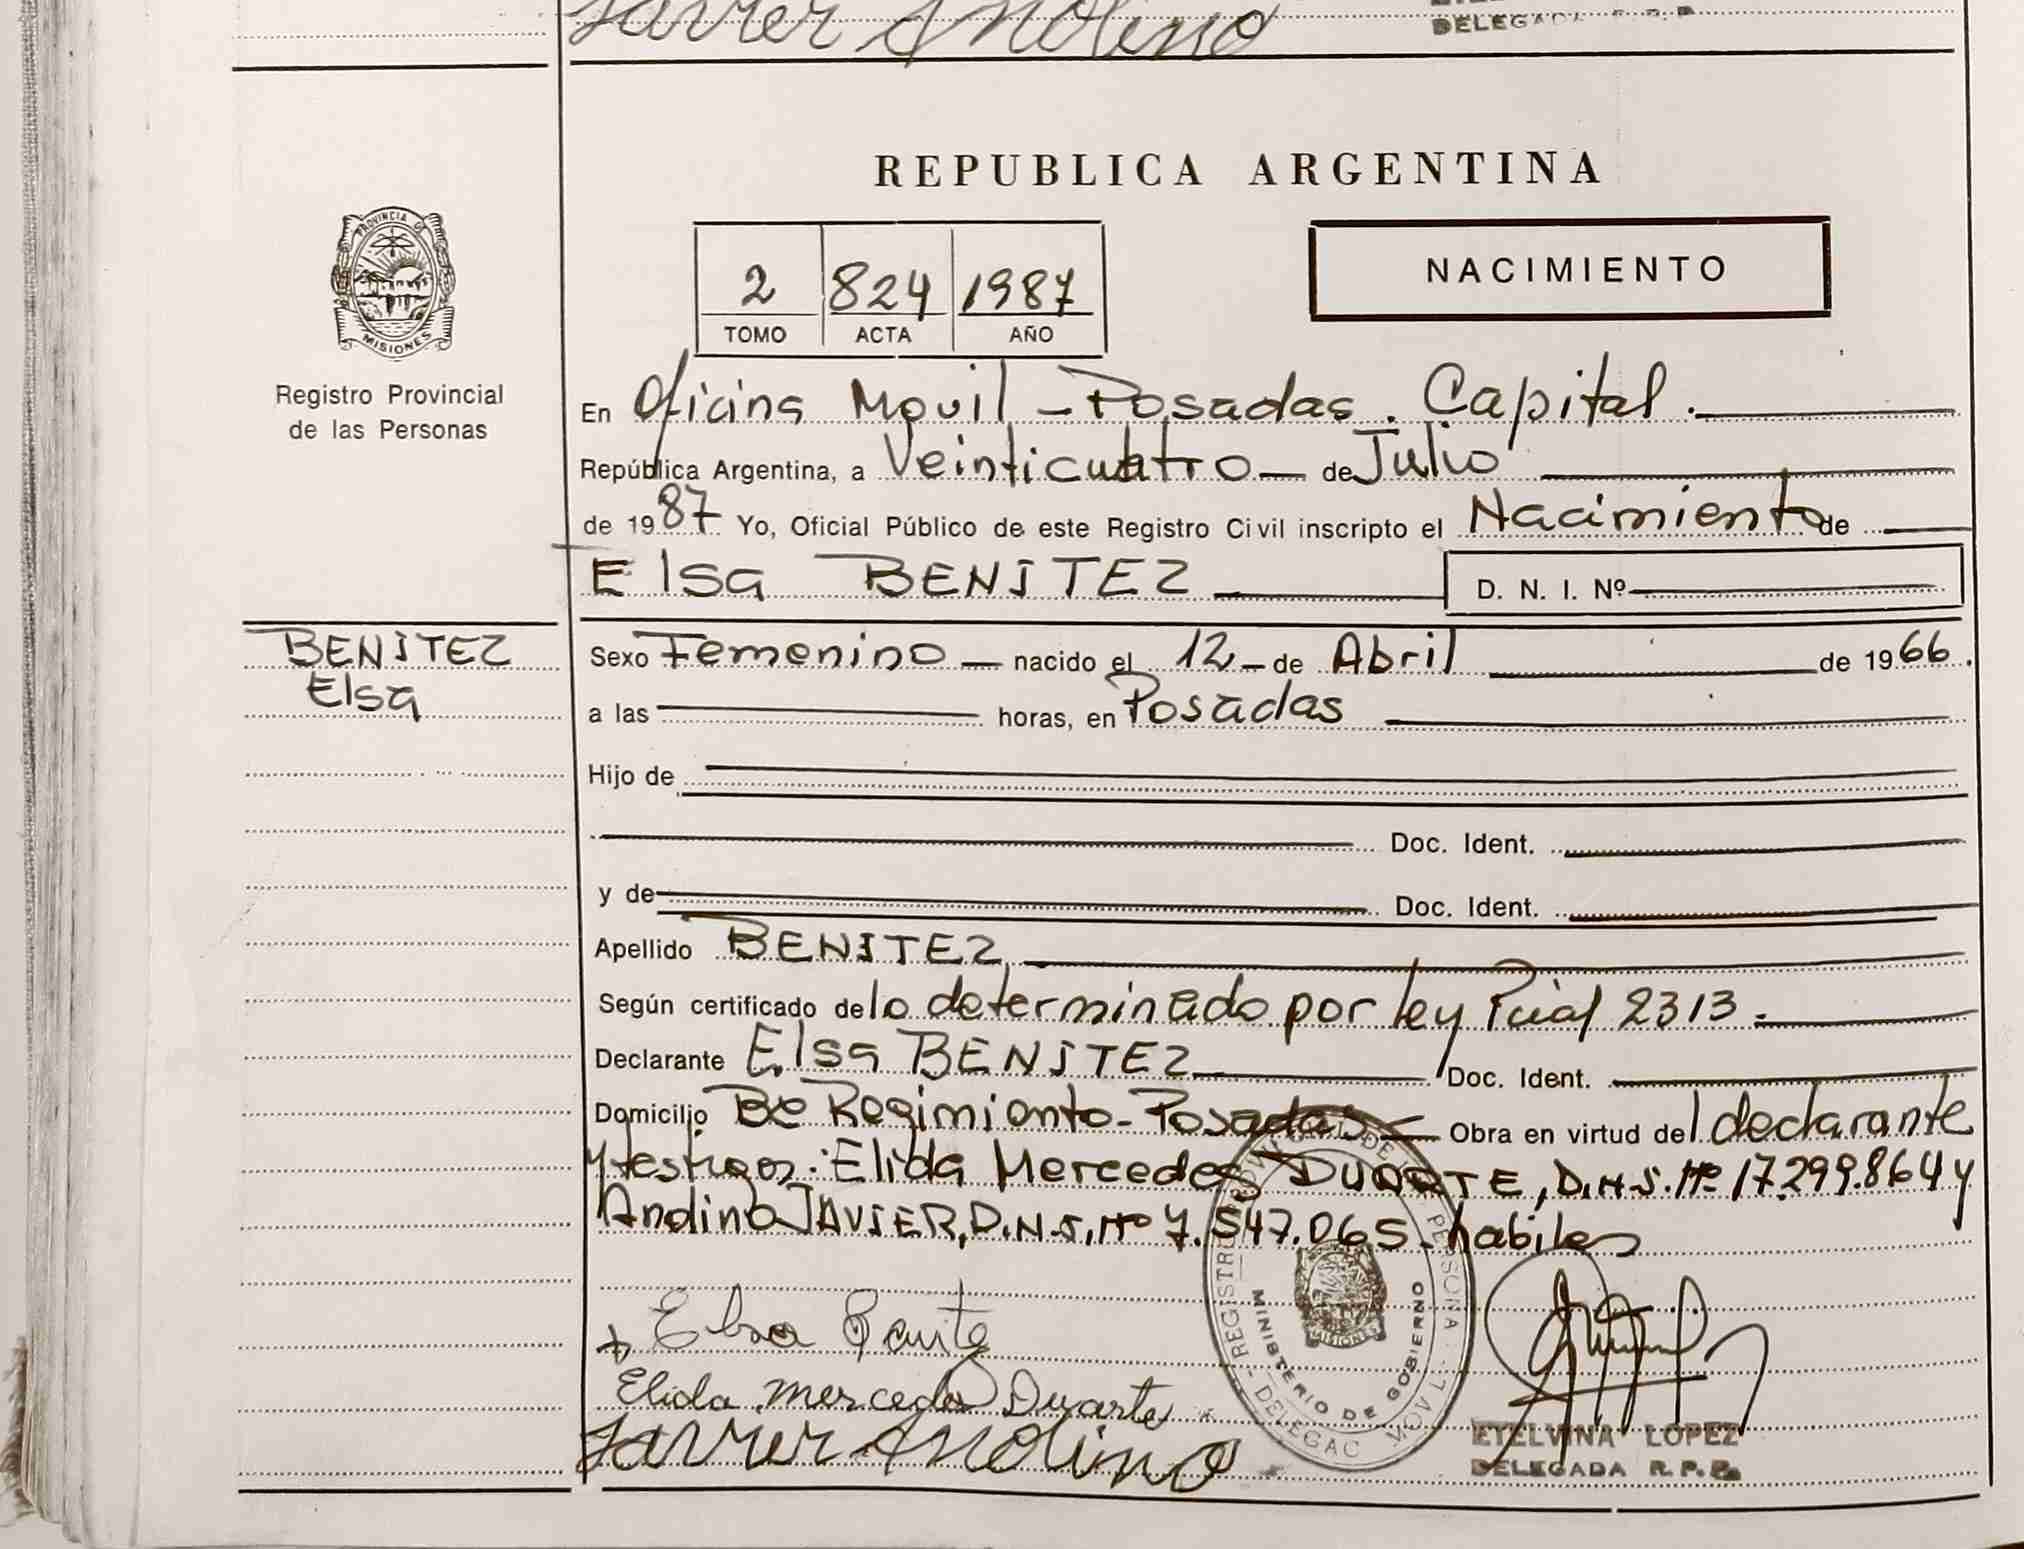 Javier Andino
DELEGADA R. P. P.
REPUBLICA ARGENTINA
PROVINCIA DE
MISIONES
Registro Provincial
de las Personas
2 824 1987
TOMO ACTA AÑO
NACIMIENTO
En Oficina Movil - Posadas. Capital.
República Argentina, a Veinticuatro de Julio
de 1987 Yo, Oficial Público de este Registro Civil inscripto el Nacimiento de
Elsa BENITEZ D. N. I. Nº
BENITEZ
Elsa
Sexo Femenino nacido el 12 de Abril de 1966.
a las horas, en Posadas
Hijo de
Doc. Ident.
y de Doc. Ident.
Apellido BENITEZ
Según certificado de lo determinado por ley Pcial 2313.
Declarante Elsa BENITEZ Doc. Ident.
Domicilio Bº Regimiento - Posadas Obra en virtud del declarante
y testigos: Elida Mercedes DUARTE, D.N.I. Nº 17.299.864 y
Andino JAVIER, D.N.I. Nº 7.547.065 habiles
Elsa
Elida Mercedes Duarte
Javier Andino
MINISTERIO DE GOBIERNO
MISIONES
ETELVINA LOPEZ
DELEGADA R. P. P.